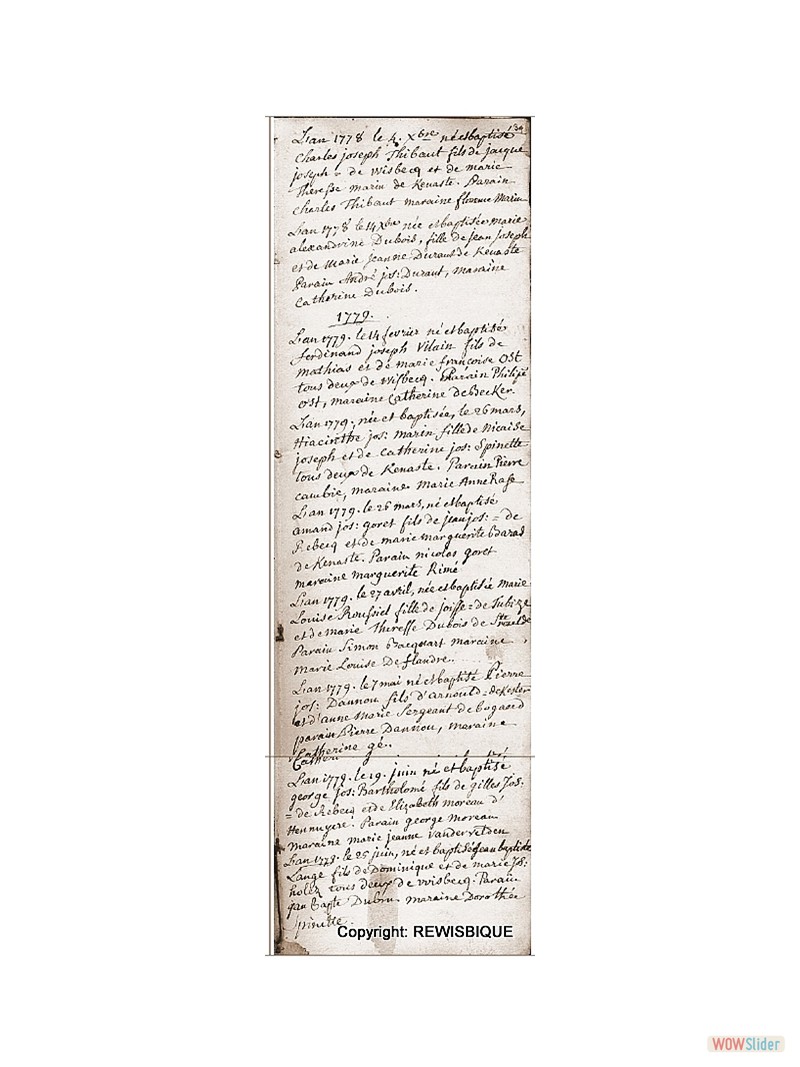 L'an 1778 le 4. Xbre né et baptisé
Charles joseph Thibaut fils de jacque
joseph = de Wisbecq et de marie
Theresse marin de Kenaste. Parain
Charles Thibaut maraine florence Marin
L'an 1778 le 14 Xbre née et baptisée marie
alexandrine Dubois, fille de jean joseph
et de Marie jeanne Duraut de Kenaste
Parain André jos: Duraut, maraine
Catherine Dubois.
1779.
L'an 1779. le 14 fevrier né et baptisé
ferdinand joseph Vilain fils de
mathias et de marie françoise Ost
tous deux de Wisbecq. Parain Philipe
Ost, maraine Catherine deBecker.
L'an 1779. née et baptisée, le 26 mars,
Hiacinthe jos: marin fille de Nicaise
joseph et de Catherine jos: Spinette
tous deux de Kenaste. Parain Pierre
cambie, maraine Marie Anne
L'an 1779. le 26 mars, né et baptisé
amand jos: goret fils de jean jos: = de
Rebecq et de marie marguerite
de Kenaste. Parain nicolas goret
maraine marguerite Rimé
L'an 1779. le 27 avril, née et baptisée Marie
Louise Roussiel fille de = de Tubize
et de marie Theresse Dubois de
Parain Simon Bacquart maraine
Marie Louise De flandre.
L'an 1779. le 7 mai né et baptisé Pierre
jos: Dannou fils d'arnould = de Kester
et d'anne Marie Sergeant de bogaerd
parain Pierre Dannou, maraine
Catherine gé..
L'an 1779. le 19. juin né et baptisé
george jos: Bartholomé fils de gilles Jos:
= de Rebecq et de Elizabeth moreau d'
Hennuyere. Parain george Moreau
maraine marie jeanne Vandervelden
L'an 1779. le 25 juin, né et baptisé Jean baptiste
Lange fils de Dominique et de marie Jos:
tous deux de Wisbecq. Parain
jan Bapte maraine Dorothée
Spinette.
Copyright: REWISBIQUE
WOWSlider